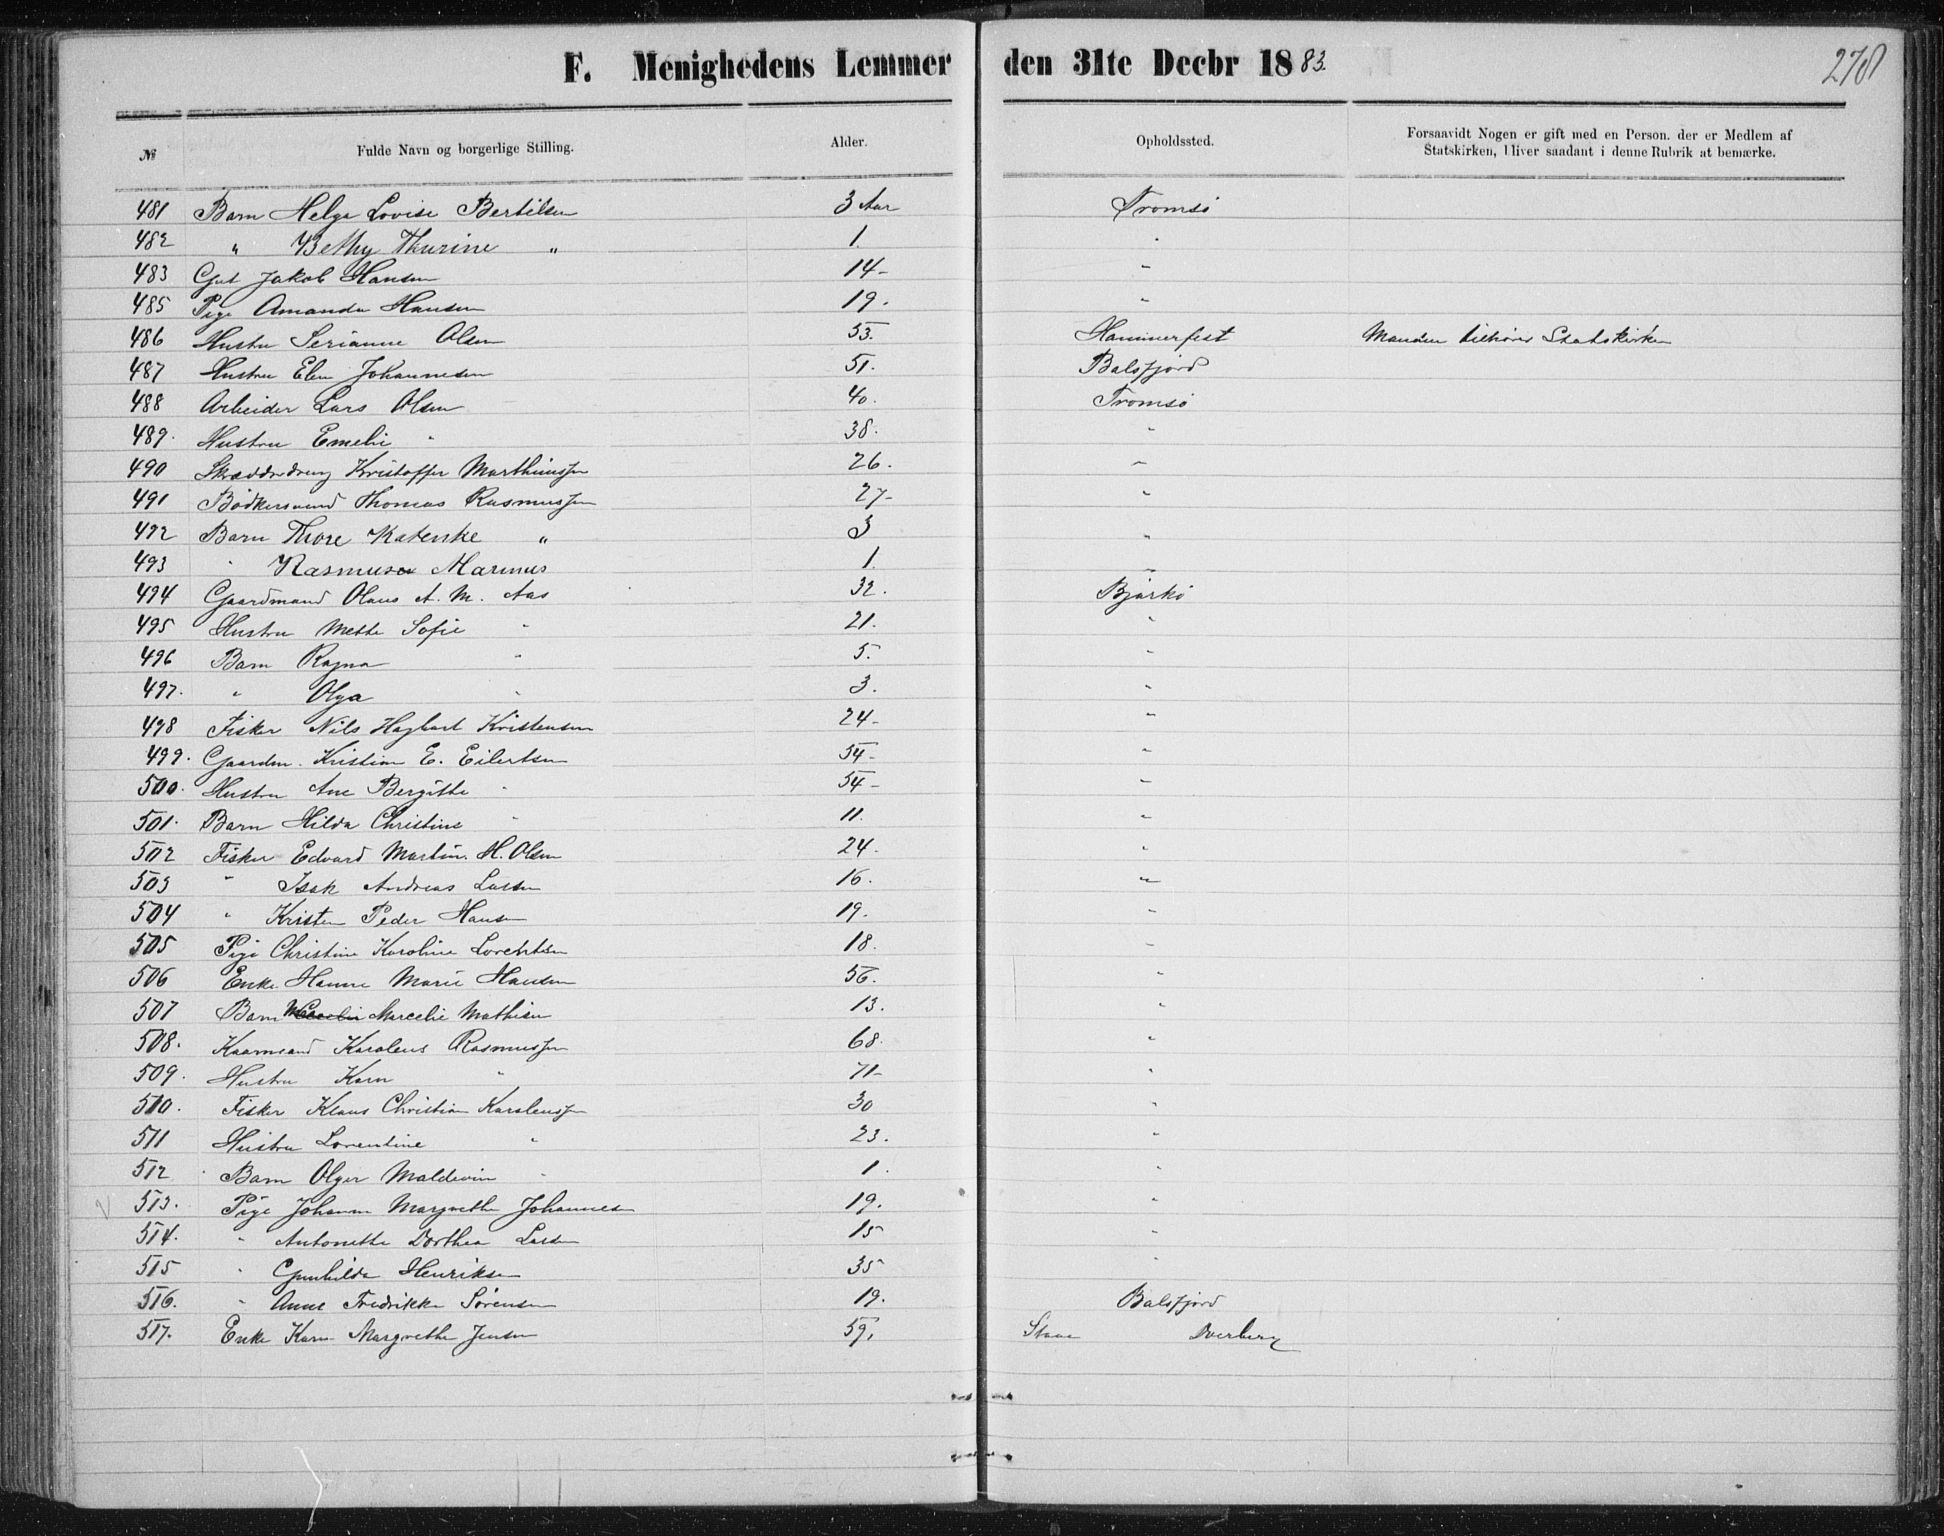 F. Menighedens Lemmer den 31te Decbr 1883. 270
№ Fulde Navn og borgerlige Stilling. Alder. Opholdssted. Forsaavidt Nogen er gift med en Person, der er Medlem af
Statskirken, bliver saadant i denne Rubrik at bemærke.
481 Barn Helga Lovise Bertilsen 3 Aar Tromsø
482 " Bethy Thurine " 1. "
483 Gut Jakob Hansen 14- "
485 Pige Amanda Hansen 19. "
486 Hustru Serianne Olsen 53. Hammerfest Manden tilhører Statskirken
487 Hustru Elen Johannesen 51. Balsfjord
488 Arbeider Lars Olsen 40. Tromsø
489. Hustru Emelie " 38. "
490 Skrædderdreng Kristoffer Marthinussen 26. "
491 Bødkersvend Thomas Rasmussen 27- "
492 Barn Thore Katenke " 3 "
493 " Rasmus Marinus 1. "
494 Gaardmand Olaus A. M. Aas 32. Bjarkø
495 Hustru Mette Sofie " 21. "
496 Barn Ragna " 5. "
497. " Olga " 3. "
498 Fisker Nils Hagbart Kristensen 24- "
499. Gaardm. Kristian E. Eilertsen 54- "
500. Hustru Ane Bergitte " 54- "
501. Barn Hilda Christine " 11. "
502 Fisker Edvard Martin. H. Olsen 24. "
503 " Isak Andreas Larsen 16. "
504 " Kristen Peder Hansen 19. "
505 Pige Christine Karoline Lorentsen 18. "
506 Enke Hanne Marie Hansen 56. "
507 Barn Marcelie Mathisen 13. "
508. Kaarmand Karolius Rasmussen 68. "
509. Hustru Karn " 71- "
510. Fisker Klaus Christian Karolussen 30 "
511 Hustru Lorentine " 23. "
512 Barn Olger Maldevin " 1. "
513. Pige Johanna Margrethe Johannes 19. "
514. " Antonette Dorthea Larsen 15 "
515 " Gunhilda Henriksen 35 "
516. " Anne Fredrikke Sørensen 19. Balsfjord
517. Enke Karn Margrethe Jensen 59. Stave Dverberg